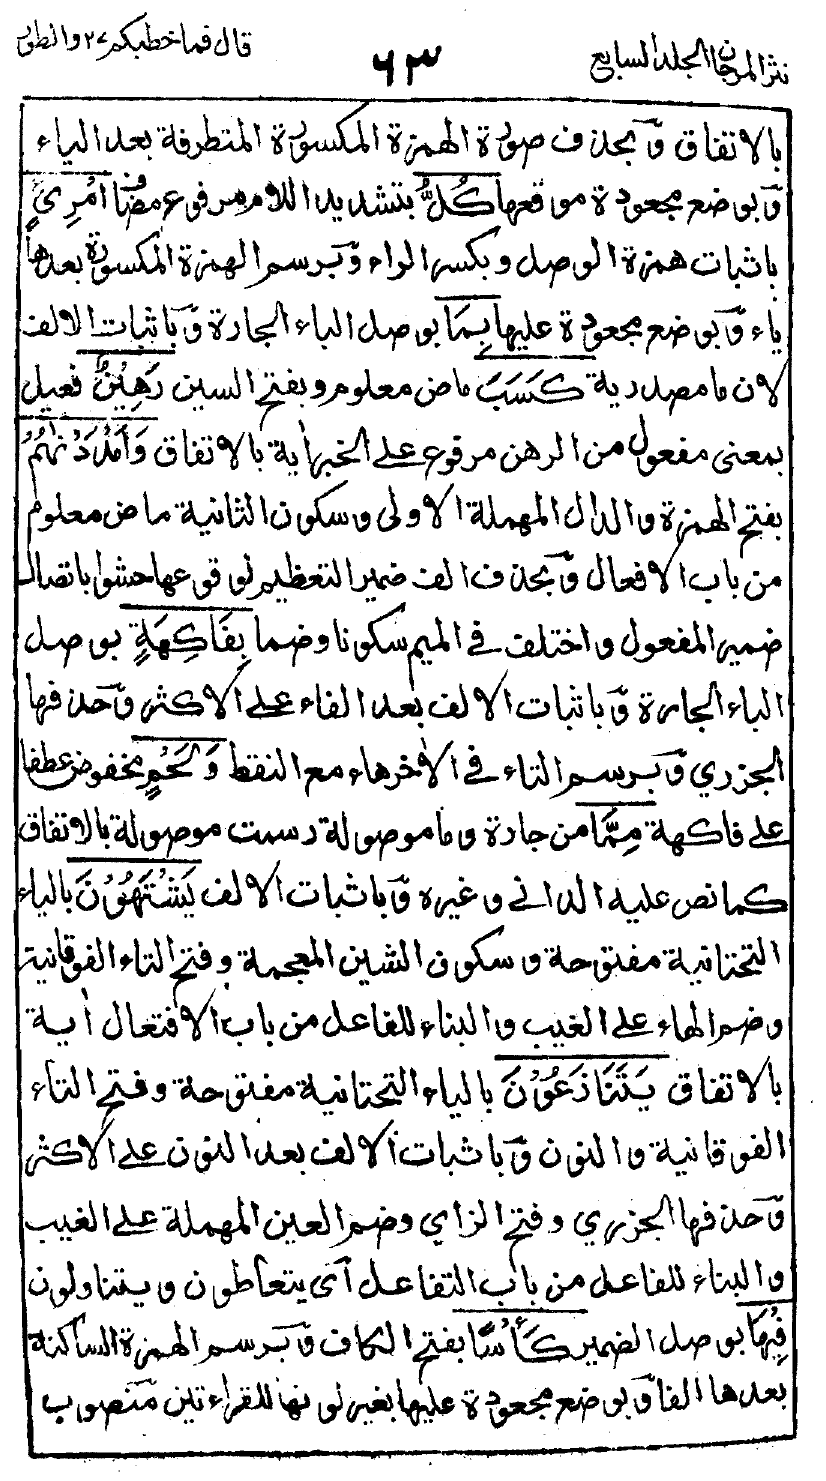 نثر المرجان الجلد السابع
٦٣
قال فما خطبكم ٢٧ والطور
بالاتفاق وبحذف صورة الهمزة المكسورة المتطرفة بعد الياء
وبوضع مجعودة موقعها كُلُّ بتشديد اللام مرفوع مضاف امْرِئٍ
باثبات همزة الوصل وبكسر الراء وبرسم الهمزة المكسورة بعدها
ياء وبوضع مجعودة عليها بِمَا بوصل الباء الجارة وباثبات الالف
لان ما مصدرية كَسَبَ ماض معلوم وبفتح السين رَهِيْنٌ فعيل
بمعنى مفعول من الرهن مرفوع على الخبر اٰية بالاتفاق وَاَمْدَدْنٰهُمْ
بفتح الهمزة والدال المهملة الاولى وسكون الثانية ماض معلوم
من باب الافعال وبحذف الف ضمير التعظيم لوقوعها حشوا باتصال
ضمير المفعول واختلف في الميم سكونا وضما بِفَاكِهَةٍ بوصل
الباء الجارة وباثبات الالف بعد الفاء على الاكثر وحذفها
الجزري وبرسم التاء في الاٰخر هاء مع النقط وَلَحْمٍ مخفوض عطفا
على فاكهة مِمَّا من جارة وما موصولة رسمت موصولة بالاتفاق
كما نص عليه الداني وغيره وباثبات الالف يَشْتَهُوْنَ بالياء
التحتانية مفتوحة وسكون الشين المعجمة وفتح التاء الفوقانية
وضم الهاء على الغيب والبناء للفاعل من باب الافتعال اٰية
بالاتفاق يَتَنَازَعُوْنَ بالياء التحتانية مفتوحة وفتح التاء
الفوقانية والنون وباثبات الالف بعد النون على الاكثر
وحذفها الجزري وفتح الزاي وضم العين المهملة على الغيب
والبناء للفاعل من باب التفاعل اى يتعاطون ويتناولون
فِيْهَا بوصل الضمير كَأْسًا بفتح الكاف وبرسم الهمزة الساكنة
بعدها الفا وبوضع مجعودة عليها بغير لونها للقراءتين منصوب